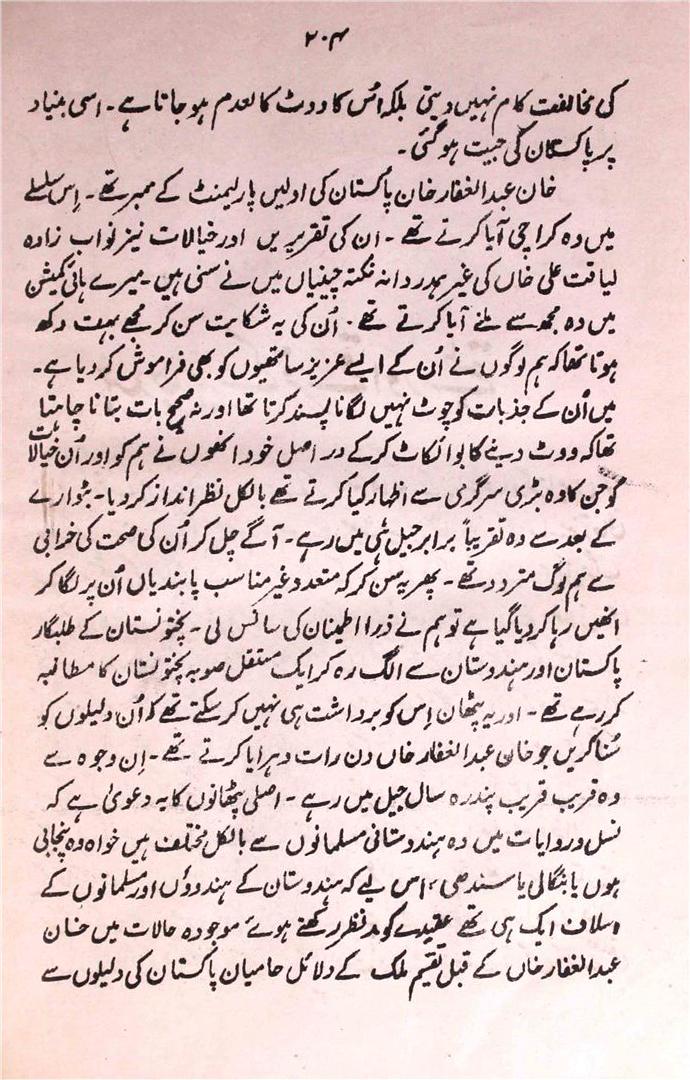 ۲۰۴
کی مخالفت کام نہیں دیتی بلکہ اُس کا ووٹ کالعدم ہو جاتا ہے۔ اسی بنیاد
پر پاکستان کی جیت ہو گئی۔
خان عبدالغفار خان پاکستان کی اولیں پارلیمنٹ کے ممبر تھے۔ اِس سلسلے
میں وہ کراچی آیا کرتے تھے۔ ان کی تقریریں اور خیالات نیز نواب زادہ
لیاقت علی خاں کی غیر ہمدردانہ نکتہ چینیاں میں نے سنی ہیں۔ میرے ہائی کمیشن
میں وہ مجھ سے ملنے آیا کرتے تھے۔ اُن کی یہ شکایت سن کر مجھے بہت دکھ
ہوتا تھا کہ ہم لوگوں نے اُن کے ایسے عزیز ساتھیوں کو بھی فراموش کر دیا ہے۔
میں اُن کے جذبات کو چوٹ نہیں لگانا پسند کرتا تھا اور نہ صحیح بات بتانا چاہتا
تھا کہ ووٹ دینے کا بوائکاٹ کر کے در اصل خود انھوں نے ہم کو اور اُن خیالات
کو جن کا وہ بڑی سرگرمی سے اظہار کیا کرتے تھے بالکل نظر انداز کر دیا۔ بٹوارے
کے بعد سے وہ تقریباً برابر جیل ہی میں رہے۔ آگے چل کر اُن کی صحت کی خرابی
سے ہم لوگ متردد تھے۔ پھر یہ سن کر کہ متعدد غیر مناسب پابندیاں اُن پر لگا کر
انھیں رہا کر دیا گیا ہے تو ہم نے ذرا اطینان کی سانس لی۔ پختونستان کے طلبگار
پاکستان اور ہندوستان سے الگ رہ کر ایک مستقل صوبہ پختونستان کا مطالبہ
کر رہے تھے۔ اور یہ پٹھان اِس کو برداشت ہی نہیں کر سکتے تھے کہ اُن دلیلوں کو
سُنا کریں جو خان عبدالغفار خاں دن رات دہرایا کرتے تھے۔ اِن وجوہ سے
وہ قریب قریب پندرہ سال جیل میں رہے۔ اصلی پٹھانوں کا یہ دعویٰ ہے کہ
نسل و روایات میں وہ ہندوستانی مسلمانوں سے بالکل مختلف ہیں خواہ وہ پنجابی
ہوں یا بنگالی یا سندھی، اس لیے کہ ہندوستان کے ہندوؤں اور مسلمانوں کے
اسلاف ایک ہی تھے عقیدے کو مد نظر رکھتے ہوئے موجودہ حالات میں خان
عبدالغفار خاں کے قبل تقسیم ملک کے دلائل حامیان پاکستان کی دلیلوں سے